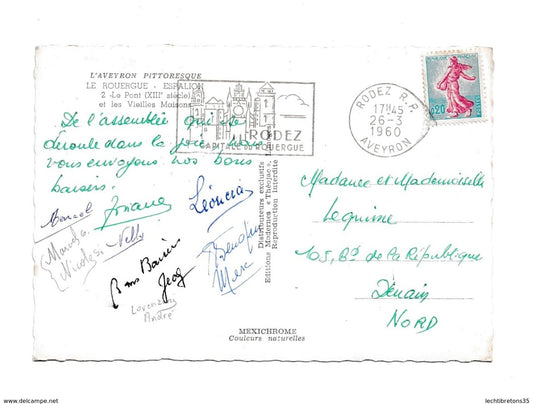 L'AVEYRON PITTORESQUE
LE ROUERGUE - ESPALION
2 - Le Pont (XIIIe siècle)
et les Vieilles Maisons
RODEZ
CAPITALE DU ROUERGUE
RODEZ R.P.
17H45
26-3
1960
AVEYRON
0,20
De l'assemblée qui se
déroule dans la joie, nous
vous envoyons nos bons
baisers.
Marcel
Josiane
Léoncia
Nelly
Nicolas.
Bons Baisers
Lorenzini
André
Editions Modernes « Théojac »
Distributeurs exclusifs
Reproduction interdite
Madame et Mademoiselle
Lequime
105, Bd de la République
Denain
NORD
MEXICHROME
Couleurs naturelles
www.delcampe.net
lechtibretons35